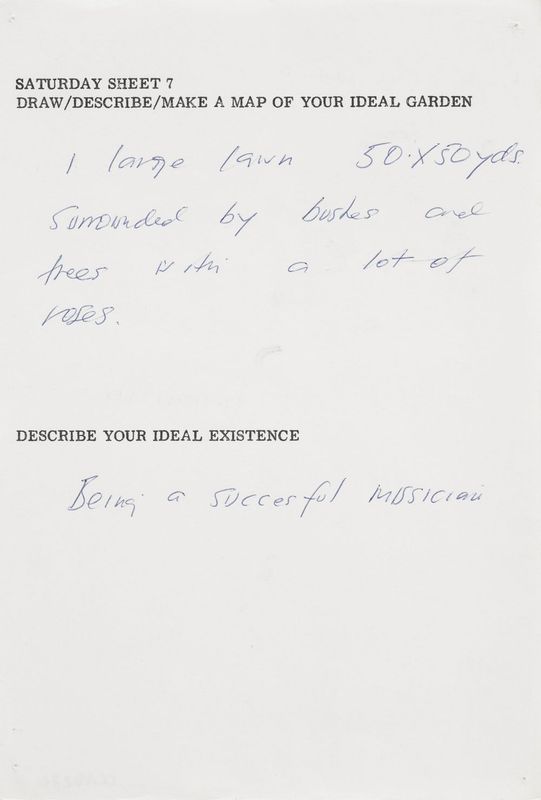 SATURDAY SHEET 7
DRAW/DESCRIBE/MAKE A MAP OF YOUR IDEAL GARDEN
1 large lawn 50.X50yds.
Surrounded by bushes and
trees with a lot of
roses.
DESCRIBE YOUR IDEAL EXISTENCE
Being a succesful musician